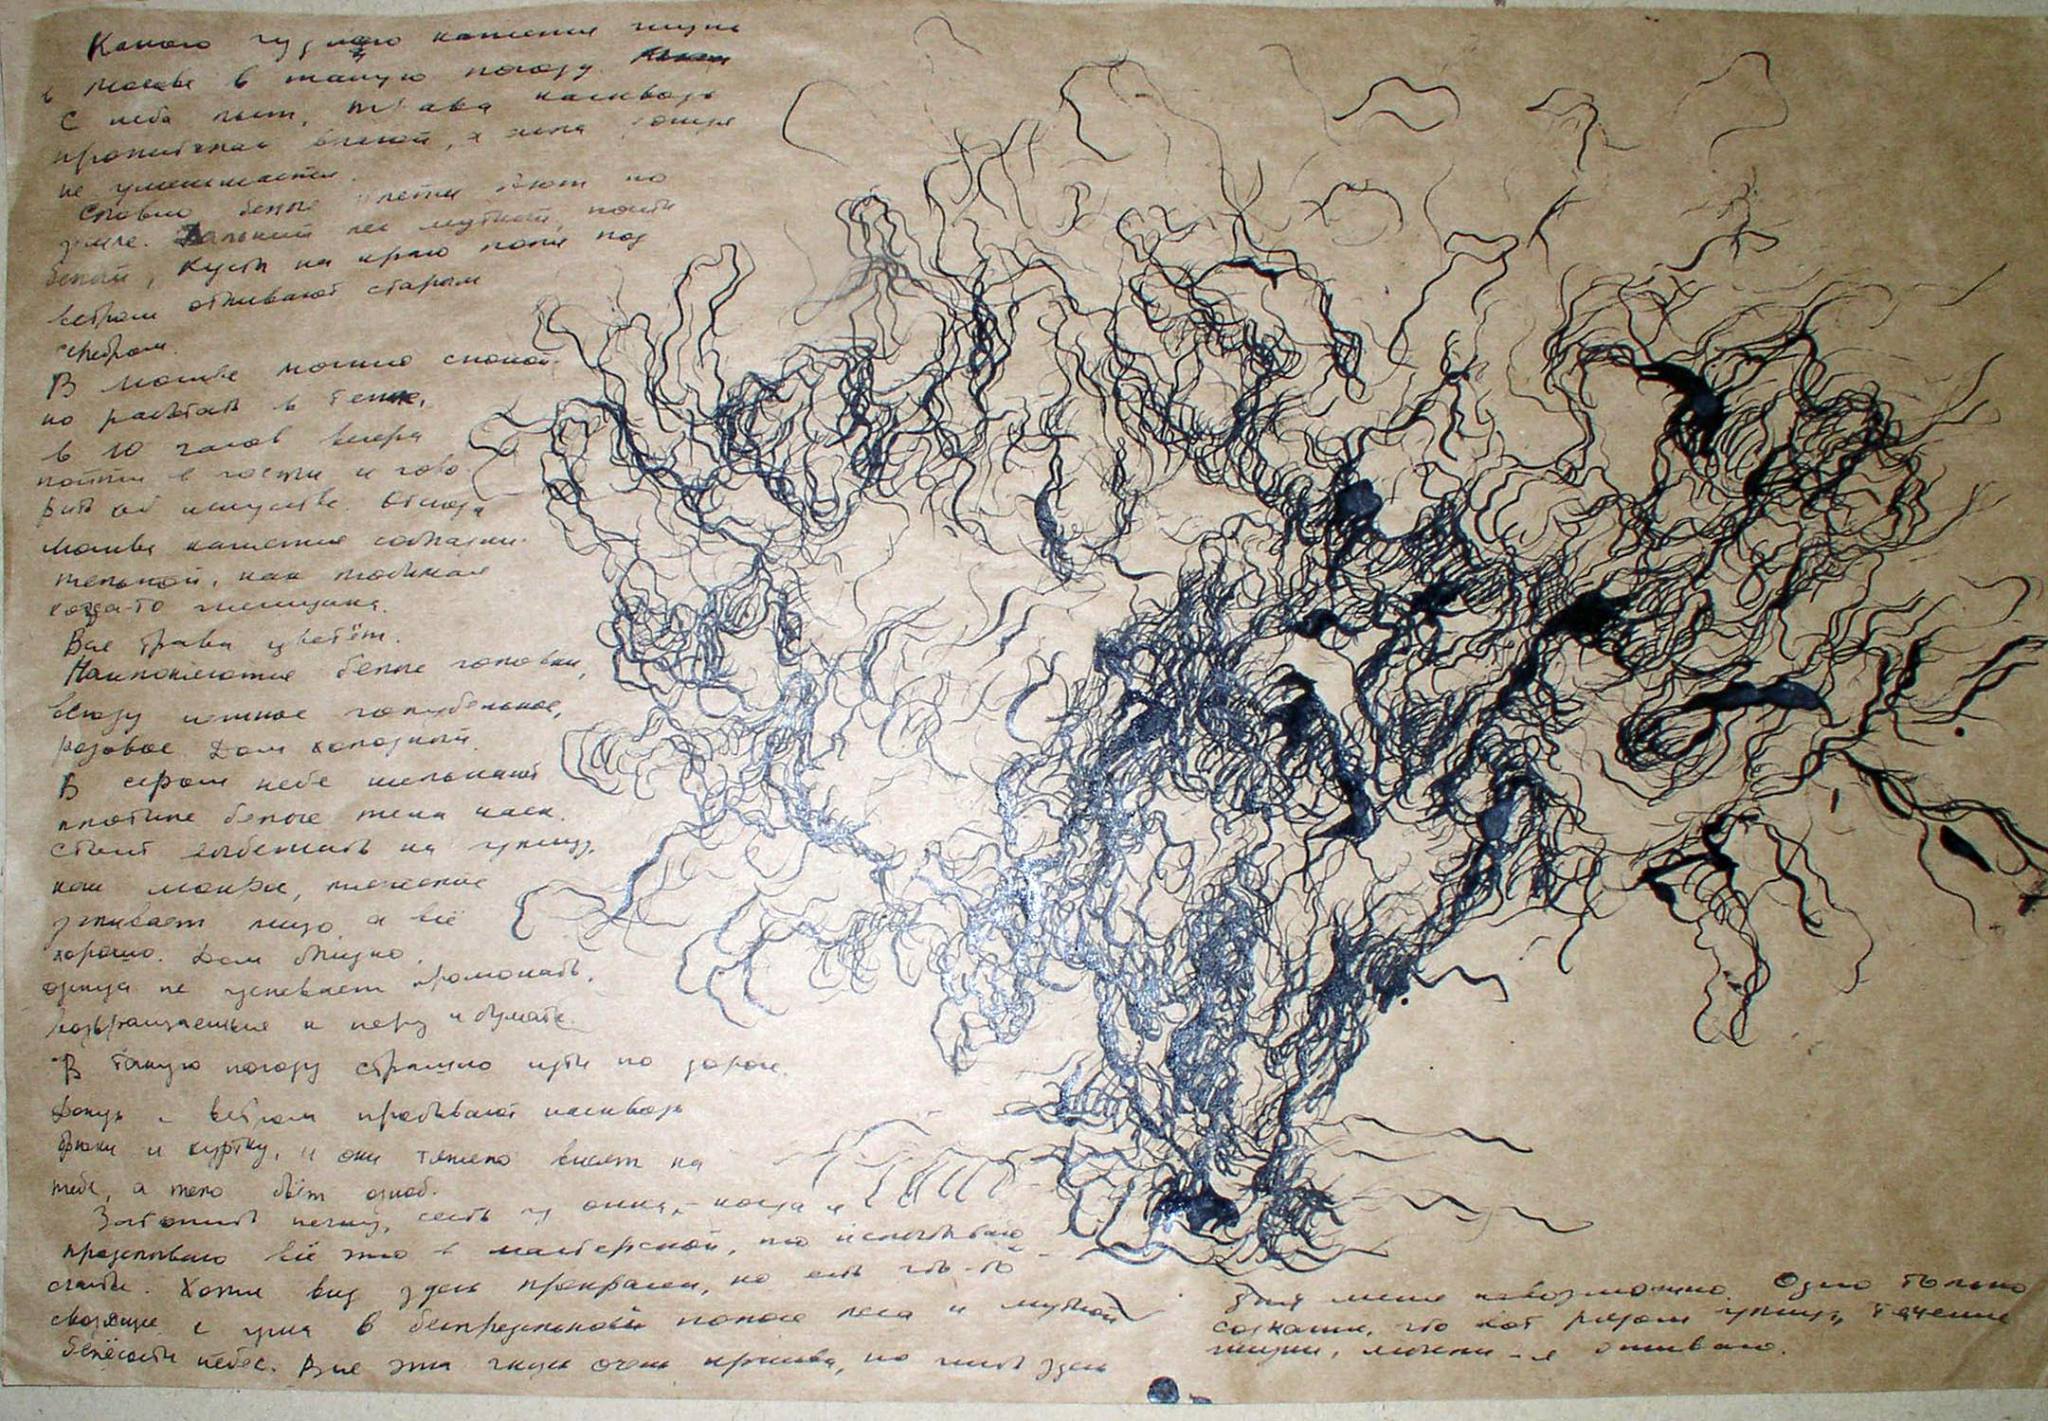 Какою чудною кажется жизнь
в Москве в такую погоду.
С неба льёт, трава насквозь
пропитана влагой, а сила дождя
не уменьшается.
Словно белые плети бьют по
земле. Дальний лес мутный, почти
белый, кусты на краю поля под
ветром отливают старым
серебром.
В Москве можно спокой-
но работать в тепле,
в 10 часов вечера
пойти в гости и гово-
рить об искусстве. Отсюда
Москва кажется соблазни-
тельной, как любимая
когда-то женщина.
Вся трава цветёт.
Наклоняются белые головки,
всюду нежное голубенькое,
розовое. Дом холодный.
В сером небе мелькают
плотные белые тела чаек.
Стоит выбежать на улицу,
как мокрое, платье
заливает лицо, а всё
хорошо. Дом близко,
одежда не успевает промокать,
возвращаешься к перу и бумаге.
В такую погоду страшно идти по дороге.
Дождь с ветром пробивают насквозь
брюки и куртку, и они тяжело висят на
тебе, а тело бьёт озноб.
Затопить печку, сесть у окна, - когда я
проделываю всё это в мастерской, то испытываю
счастье. Хотя вид здесь прекрасен, но есть что-то
сводящее с ума в беспредельной полосе леса и мутной
белёсости небес. Вся эта глушь очень красива, но жить здесь
для меня невозможно. Одно только
сознание, что вот рядом улицы, течение
жизни, жизни - я оживаю.